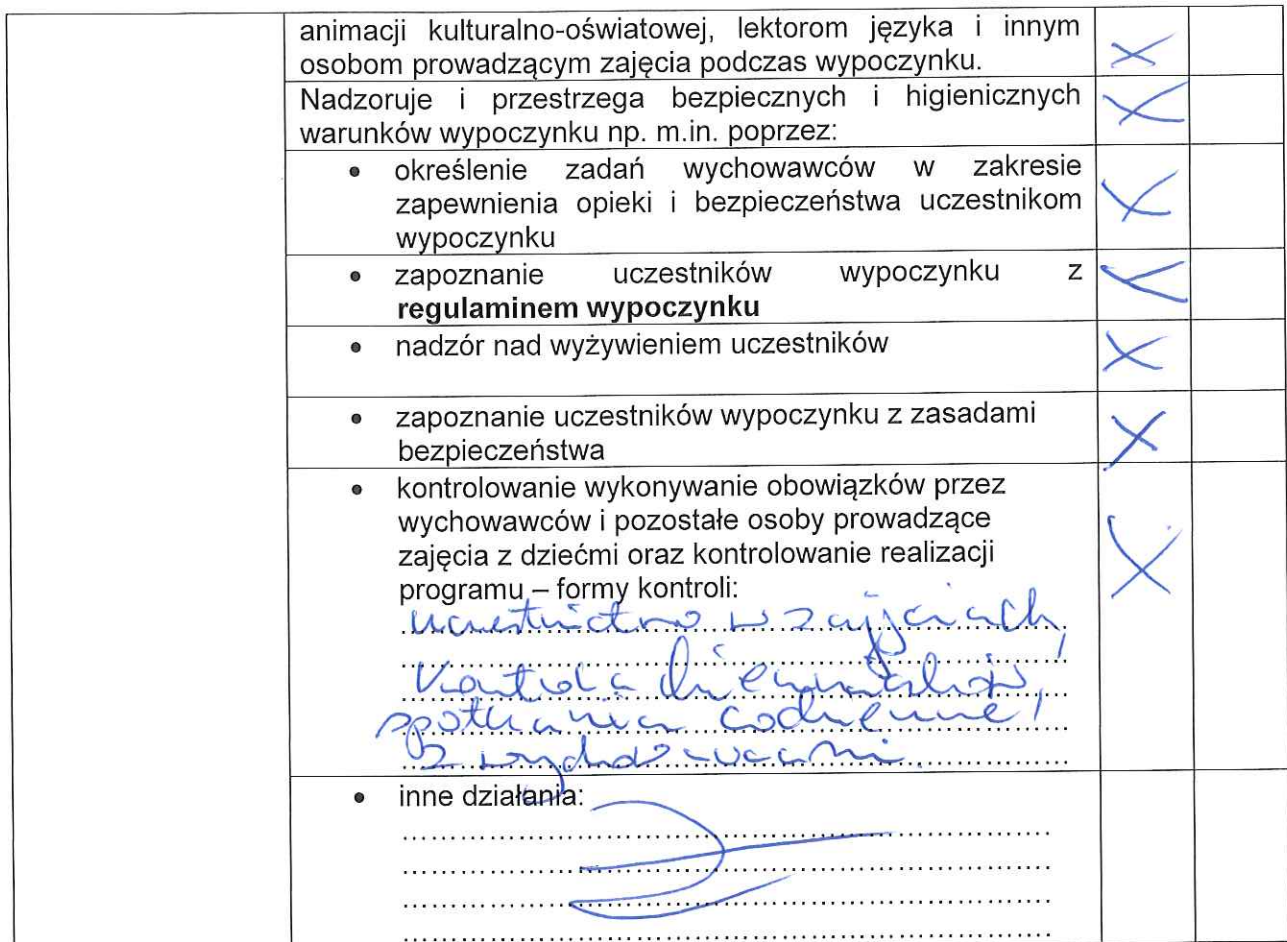 animacji kulturalno-oświatowej, lektorom języka i innym
osobom prowadzącym zajęcia podczas wypoczynku.
Nadzoruje i przestrzega bezpiecznych i higienicznych
warunków wypoczynku np. m.in. poprzez:
• określenie zadań wychowawców w zakresie
zapewnienia opieki i bezpieczeństwa uczestnikom
wypoczynku
• zapoznanie uczestników wypoczynku z
regulaminem wypoczynku
• nadzór nad wyżywieniem uczestników
• zapoznanie uczestników wypoczynku z zasadami
bezpieczeństwa
• kontrolowanie wykonywanie obowiązków przez
wychowawców i pozostałe osoby prowadzące
zajęcia z dziećmi oraz kontrolowanie realizacji
programu – formy kontroli:
uczestnictwo w zajęciach,
Kontrola dzienników,
spotkania codzienne,
z wychowawcami.
• inne działania: